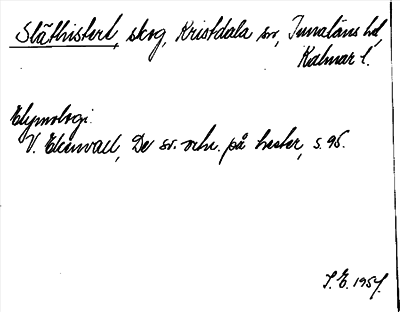 Släthistert, skog, Kristdala sn, Tunaläns hd,
Kalmar l.
Etymologi.
V. Ekenvall, De sv. ortn. på hester, s. 96.
S.E. 1957.